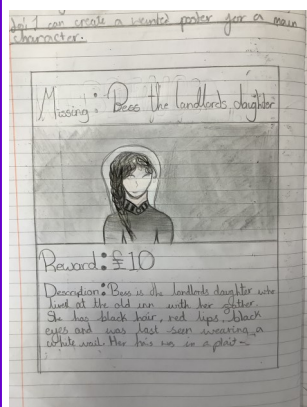 I can create a wanted poster for a main
character.
Missing: Bess the landlords daughter
Reward: £10
Description: Bess is the landlords daughter who
lived at the old inn with her father.
She has black hair, red lips, black
eyes and was last seen wearing a
white vail. Her hair was in a plait